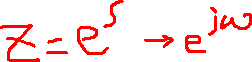 z = e^s → e^{jω}